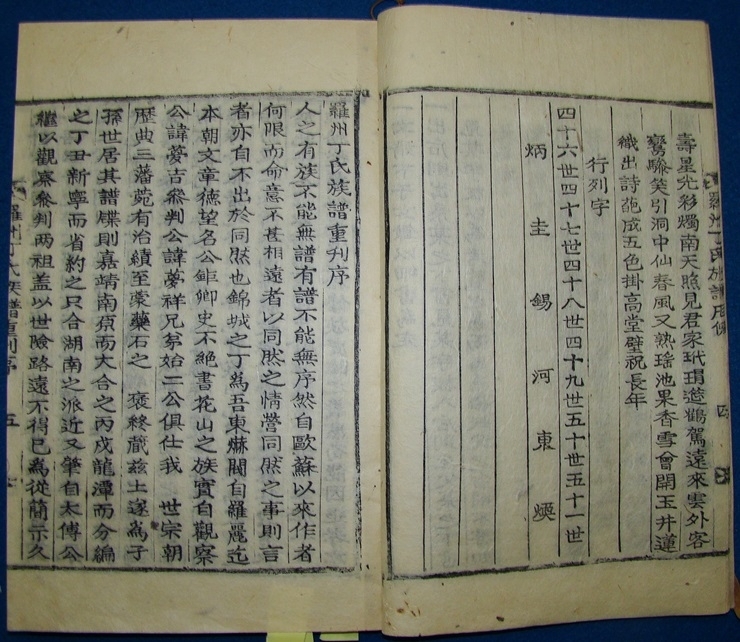 壽星光彩燭南天照見君家玳瑁筵鶴駕遠來雲外客
鸞驂笑引洞中仙春風又熟瑤池果香雪會開玉井蓮
織出詩葩成五色掛高堂壁祝長年
行列字
四十六世四十七世四十八世四十九世五十世五十一世
炳 圭 錫 河 東 煐
四
羅州丁氏族譜重刋序
人之有族不能無譜有譜不能無序然自歐蘇以來作者
何限而命意不甚相遠者以同然之情營同然之事則言
者亦自不出於同然也錦城之丁爲吾東爀閥自羅麗迄
本朝文章德望名公鉅卿史不絶書花山之族實自觀察
公諱夢吉叅判公諱夢祥兄弟始二公俱仕我 世宗朝
歷典三藩菀有治績至蒙藥石之 褒終藏玆土遂爲子
孫世居其譜牒則嘉靖南原而大合之丙戌龍潭而分編
之丁丑新寧而省約之只合湖南之派近又肇自太傅公
繼以觀察叅判两祖盖以世險路遠不得已爲從簡示久
羅州丁氏族譜重刋序 五